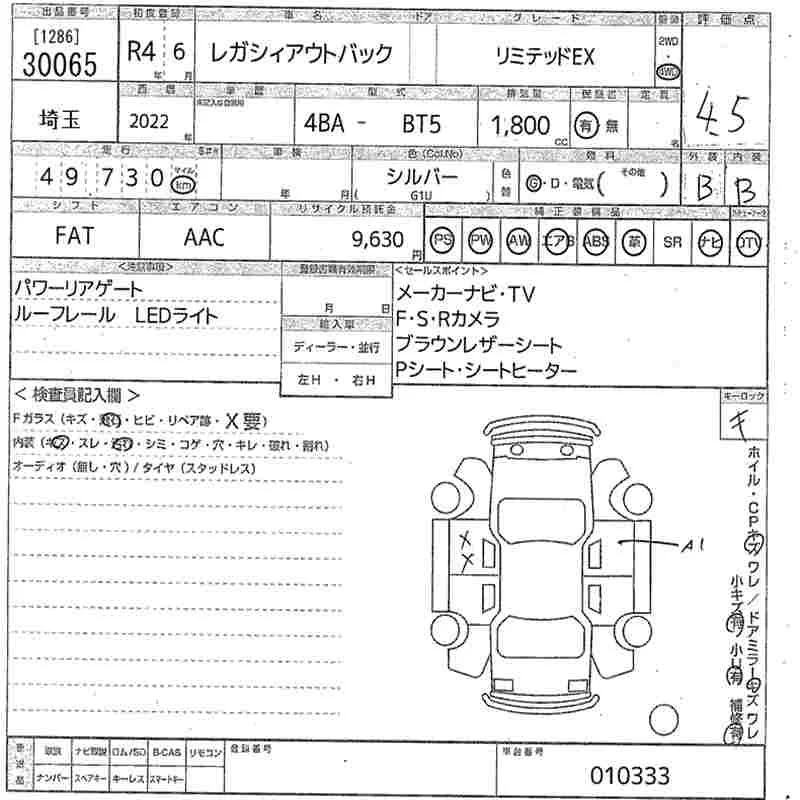 出品番号 初度登録 車名 ドア グレード 駆動 評価点
[1286]
30065
R4 6 年 月
レガシィアウトバック
リミテッドEX
2WD
・
4WD
4.5
西暦 車歴 型式 排気量 保証書 定員
埼玉
2022 年
4BA - BT5
1,800 CC
有・無
名
走行 車検 色(Col.No) 燃料 外装 内装
49,730 マイル km
年 月
シルバー
( G1U )
色替
G・D・電気( その他 )
B B
シフト エアコン リサイクル預託金 純正装備品
FAT
AAC
9,630 円
PS PW AW エアB ABS 革 SR ナビ DTV
<注意事項> 登録書類有効期限 <セールスポイント>
パワーリアゲート
ルーフレール LEDライト
月 日
輸入車
ディーラー・並行
左H ・ 右H
メーカーナビ・TV
F・S・Rカメラ
ブラウンレザーシート
Pシート・シートヒーター
＜検査員記入欄＞
Fガラス(キズ・飛石・ヒビ・リペア跡・X要)
内装(キズ・スレ・汚れ・シミ・コゲ・穴・キレ・破れ・割れ)
オーディオ(無し・穴)/タイヤ(スタッドレス)
キーロック
キ
X
X
A1
ホイル・CPキズワレ/ドアミラーキズワレ
小キズ有/小U有 補修有
後日品
取説 ナビ取説 ロム/SD B-CAS リモコン
ナンバー スペアキー キーレス スマートキー
登録番号
車台番号
010333